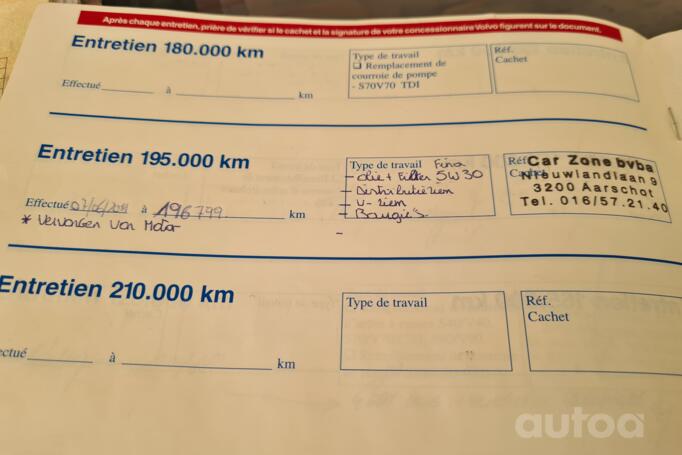 Après chaque entretien, prière de vérifier si le cachet et la signature de votre concessionnaire Volvo figurent sur le document.
Entretien 180.000 km
Type de travail
❑ Remplacement de
courroie de pompe
- S70V70 TDI
Réf.
Cachet
Effectué à km
Entretien 195.000 km
Type de travail Fina
- olie + Filter 5W30
- Distributieriem
- V-riem
- Bougie's
Réf.
Cachet
Car Zone bvba
Nieuwlandlaan 9
3200 Aarschot
Tel. 016/57.21.40
Effectué à 196799 km
* Vervangen van Motor
Entretien 210.000 km
Type de travail
Réf.
Cachet
ectué à km
autoa